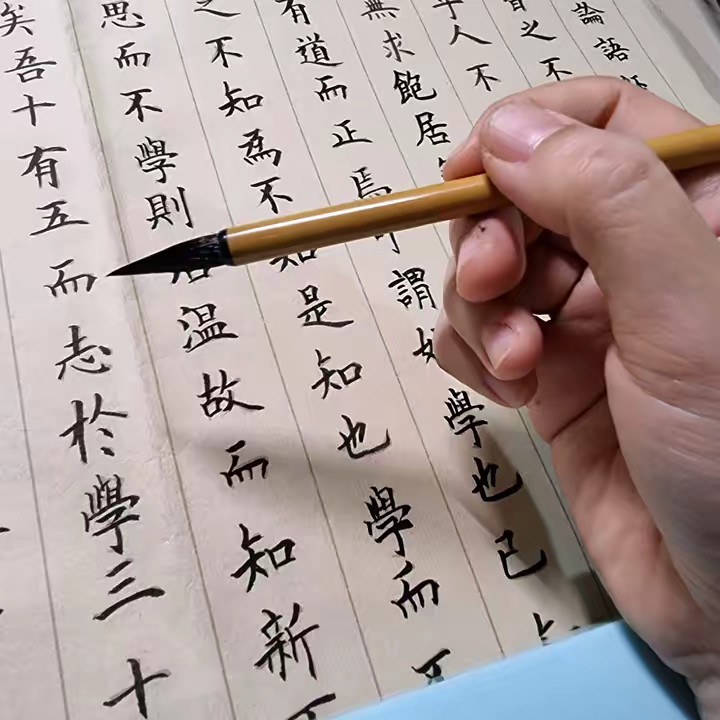 論語
之不
乎人不
無求飽居
有道而正焉謂好學也已
之不知為不知是知也學而不
思而不學則温故而知新
矣吾十有五而志於學三十